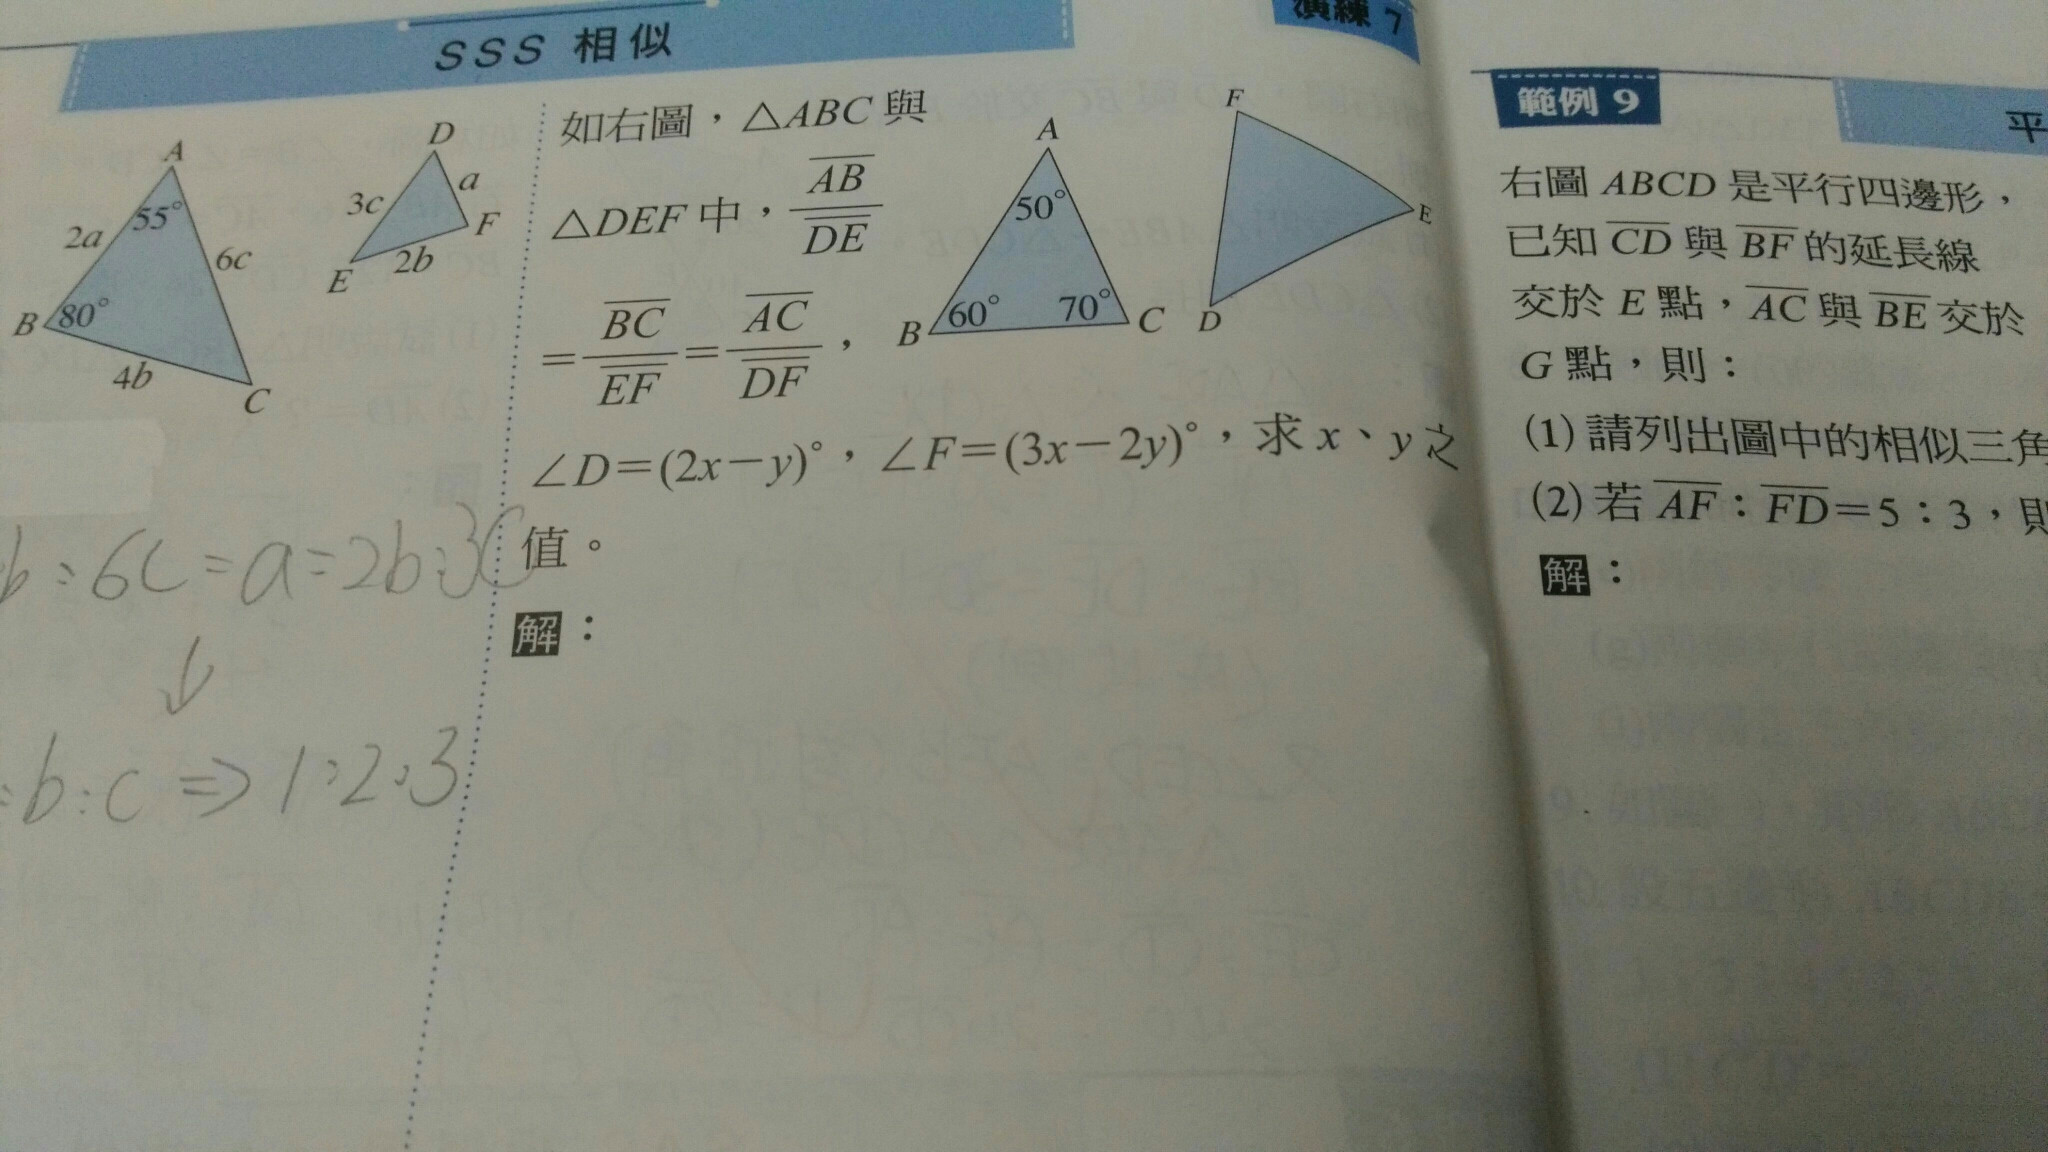 SSS 相似
A
55°
2a
6c
B
80°
4b
C
D
3c
a
F
E
2b
b:6c=a=2b:3c
:b:c⇒1:2:3
演練 7
如右圖，△ABC 與
△DEF 中，AB/DE
=BC/EF=AC/DF，
∠D=(2x-y)°，∠F=(3x-2y)°，求 x、y 之
值。
解：
A
50°
60°
70°
B
C
F
E
D
範例 9
平
右圖 ABCD 是平行四邊形，
已知 CD 與 BF 的延長線
交於 E 點，AC 與 BE 交於
G 點，則：
(1) 請列出圖中的相似三角
(2) 若 AF：FD=5：3，則
解：